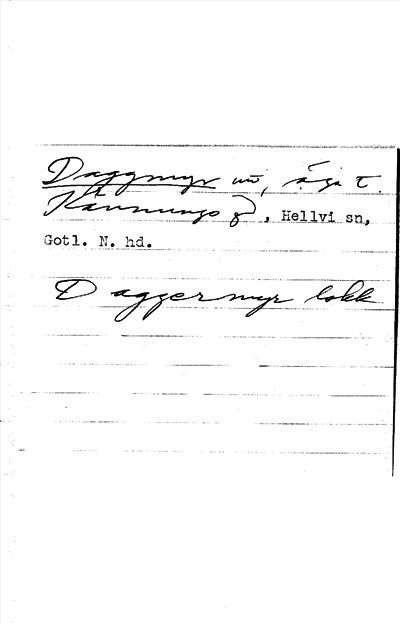 Daggmyr uö, äga t.
Kännungs g, Hellvi sn,
Gotl. N. hd.
Daggermyr lokk